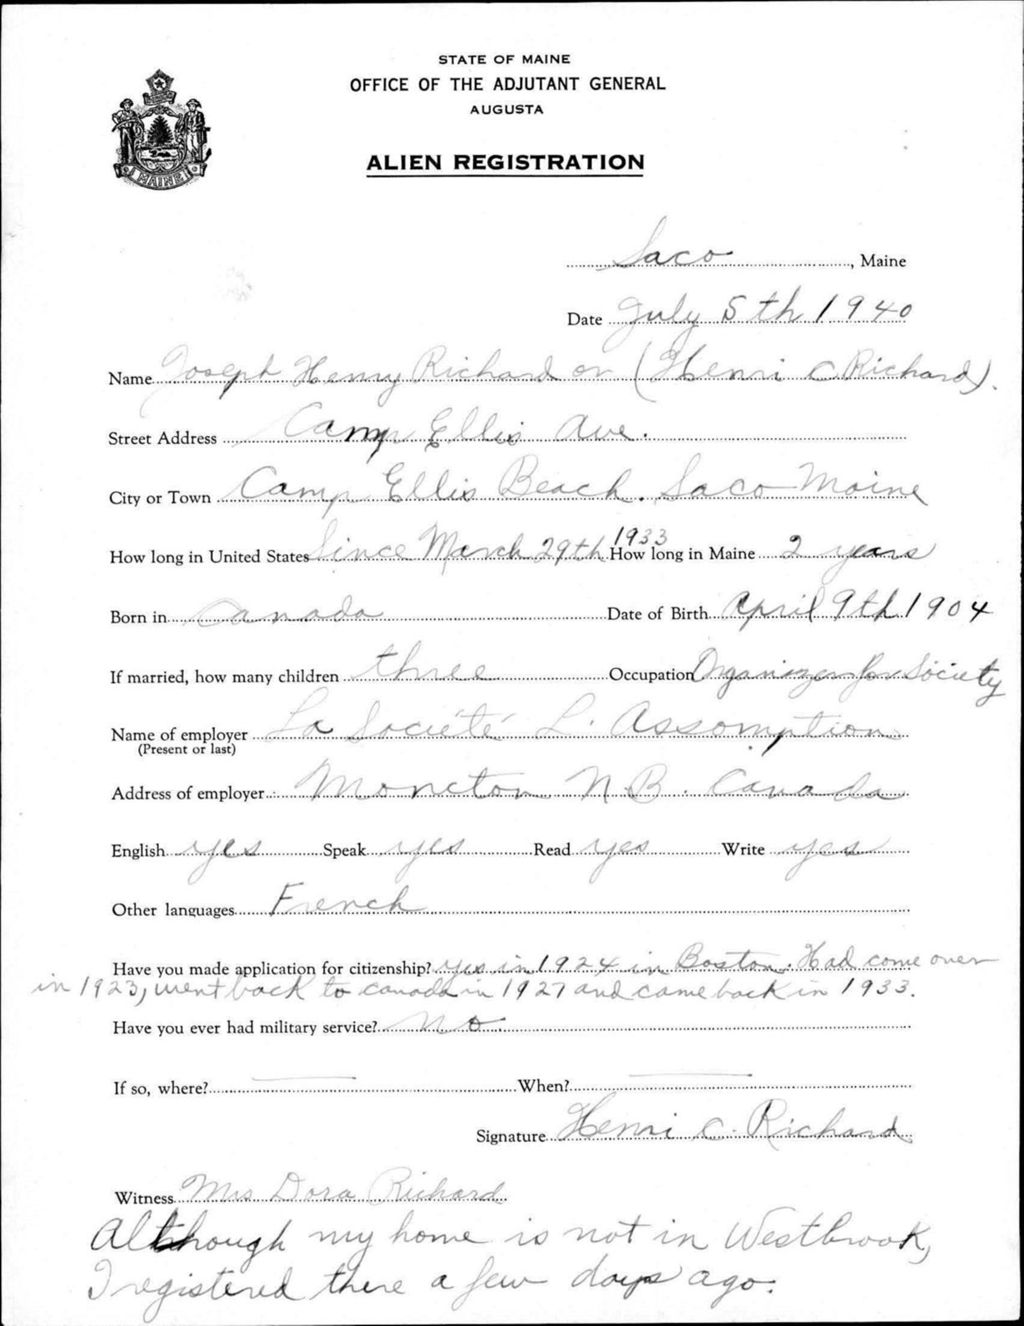 STATE OF MAINE
OFFICE OF THE ADJUTANT GENERAL
AUGUSTA
ALIEN REGISTRATION
MAINE
Saco, Maine
Date July 5th 1940
Name Joseph Henry Richard or (Henri C Richard).
Street Address Camp Ellis Ave.
City or Town Camp Ellis Beach. Saco Maine
How long in United States Since March 29th 1933 How long in Maine 2 years
Born in Canada Date of Birth April 9th 1904
If married, how many children three Occupation Organizer for Society
Name of employer La Société L'Assomption
(Present or last)
Address of employer Moncton N.B. Canada
English yes Speak yes Read yes Write yes
Other languages French
Have you made application for citizenship? yes in 1924 in Boston. Had come over
in 1923, went back to Canada in 1927 and came back in 1933.
Have you ever had military service? No.
If so, where? — When? —
Signature Henri C. Richard
Witness Mrs Dora Richard
Although my home is not in Westbrook,
I registered there a few days ago.